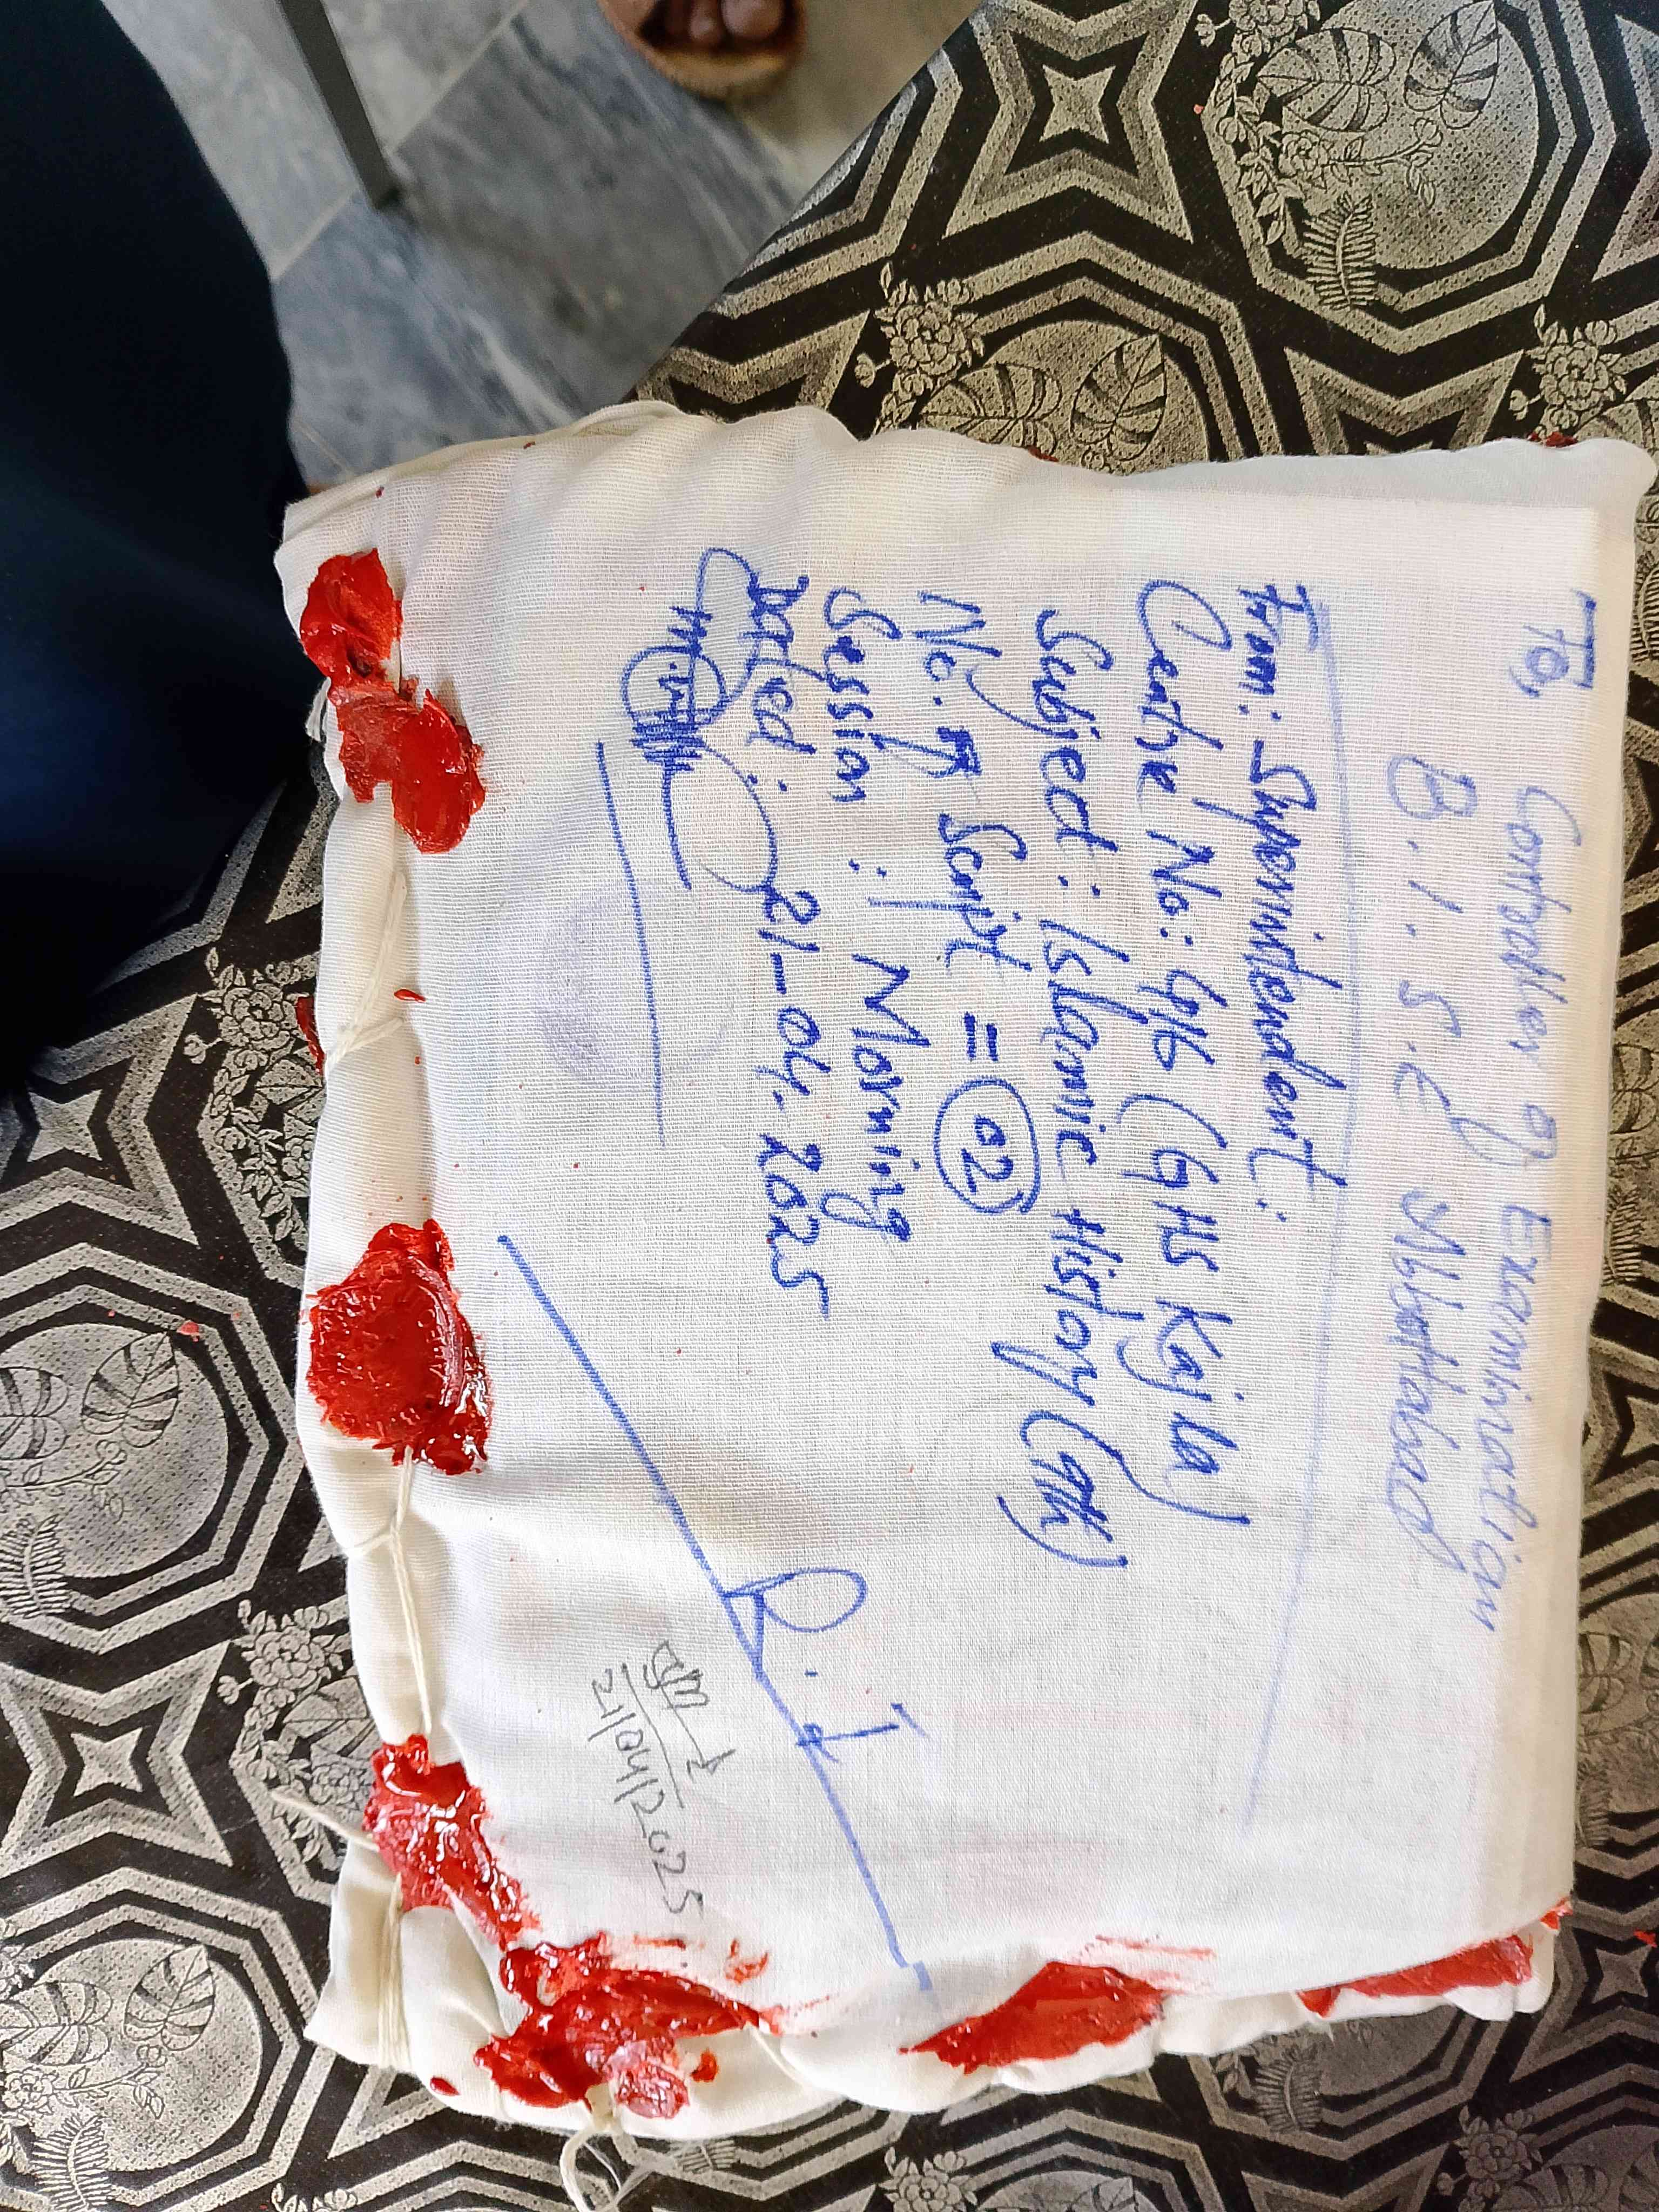 To,
Controller of Examination
B.I.S.E Abbottabad
From: Superintendent:
Centre No: 446 (GHS Kajla)
Subject: Islamic History (9th)
No. of Script = 02
Session: Morning
Dated: 21-04-2025
R.I
21/04/2025